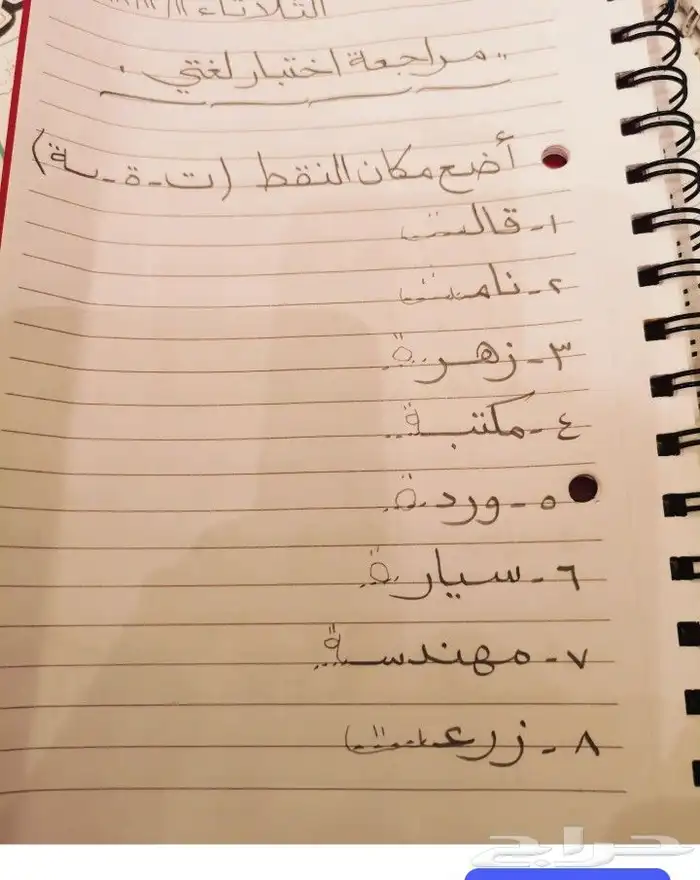 الثلاثاء
.. مراجعة اختبار لغتي .
أضع مكان النقط (ت - ة - ـة)
١- قالت
٢- نامت
٣- زهرة
٤- مكتبة
٥- وردة
٦- سيارة
٧- مهندسة
٨- زرعت
حراج